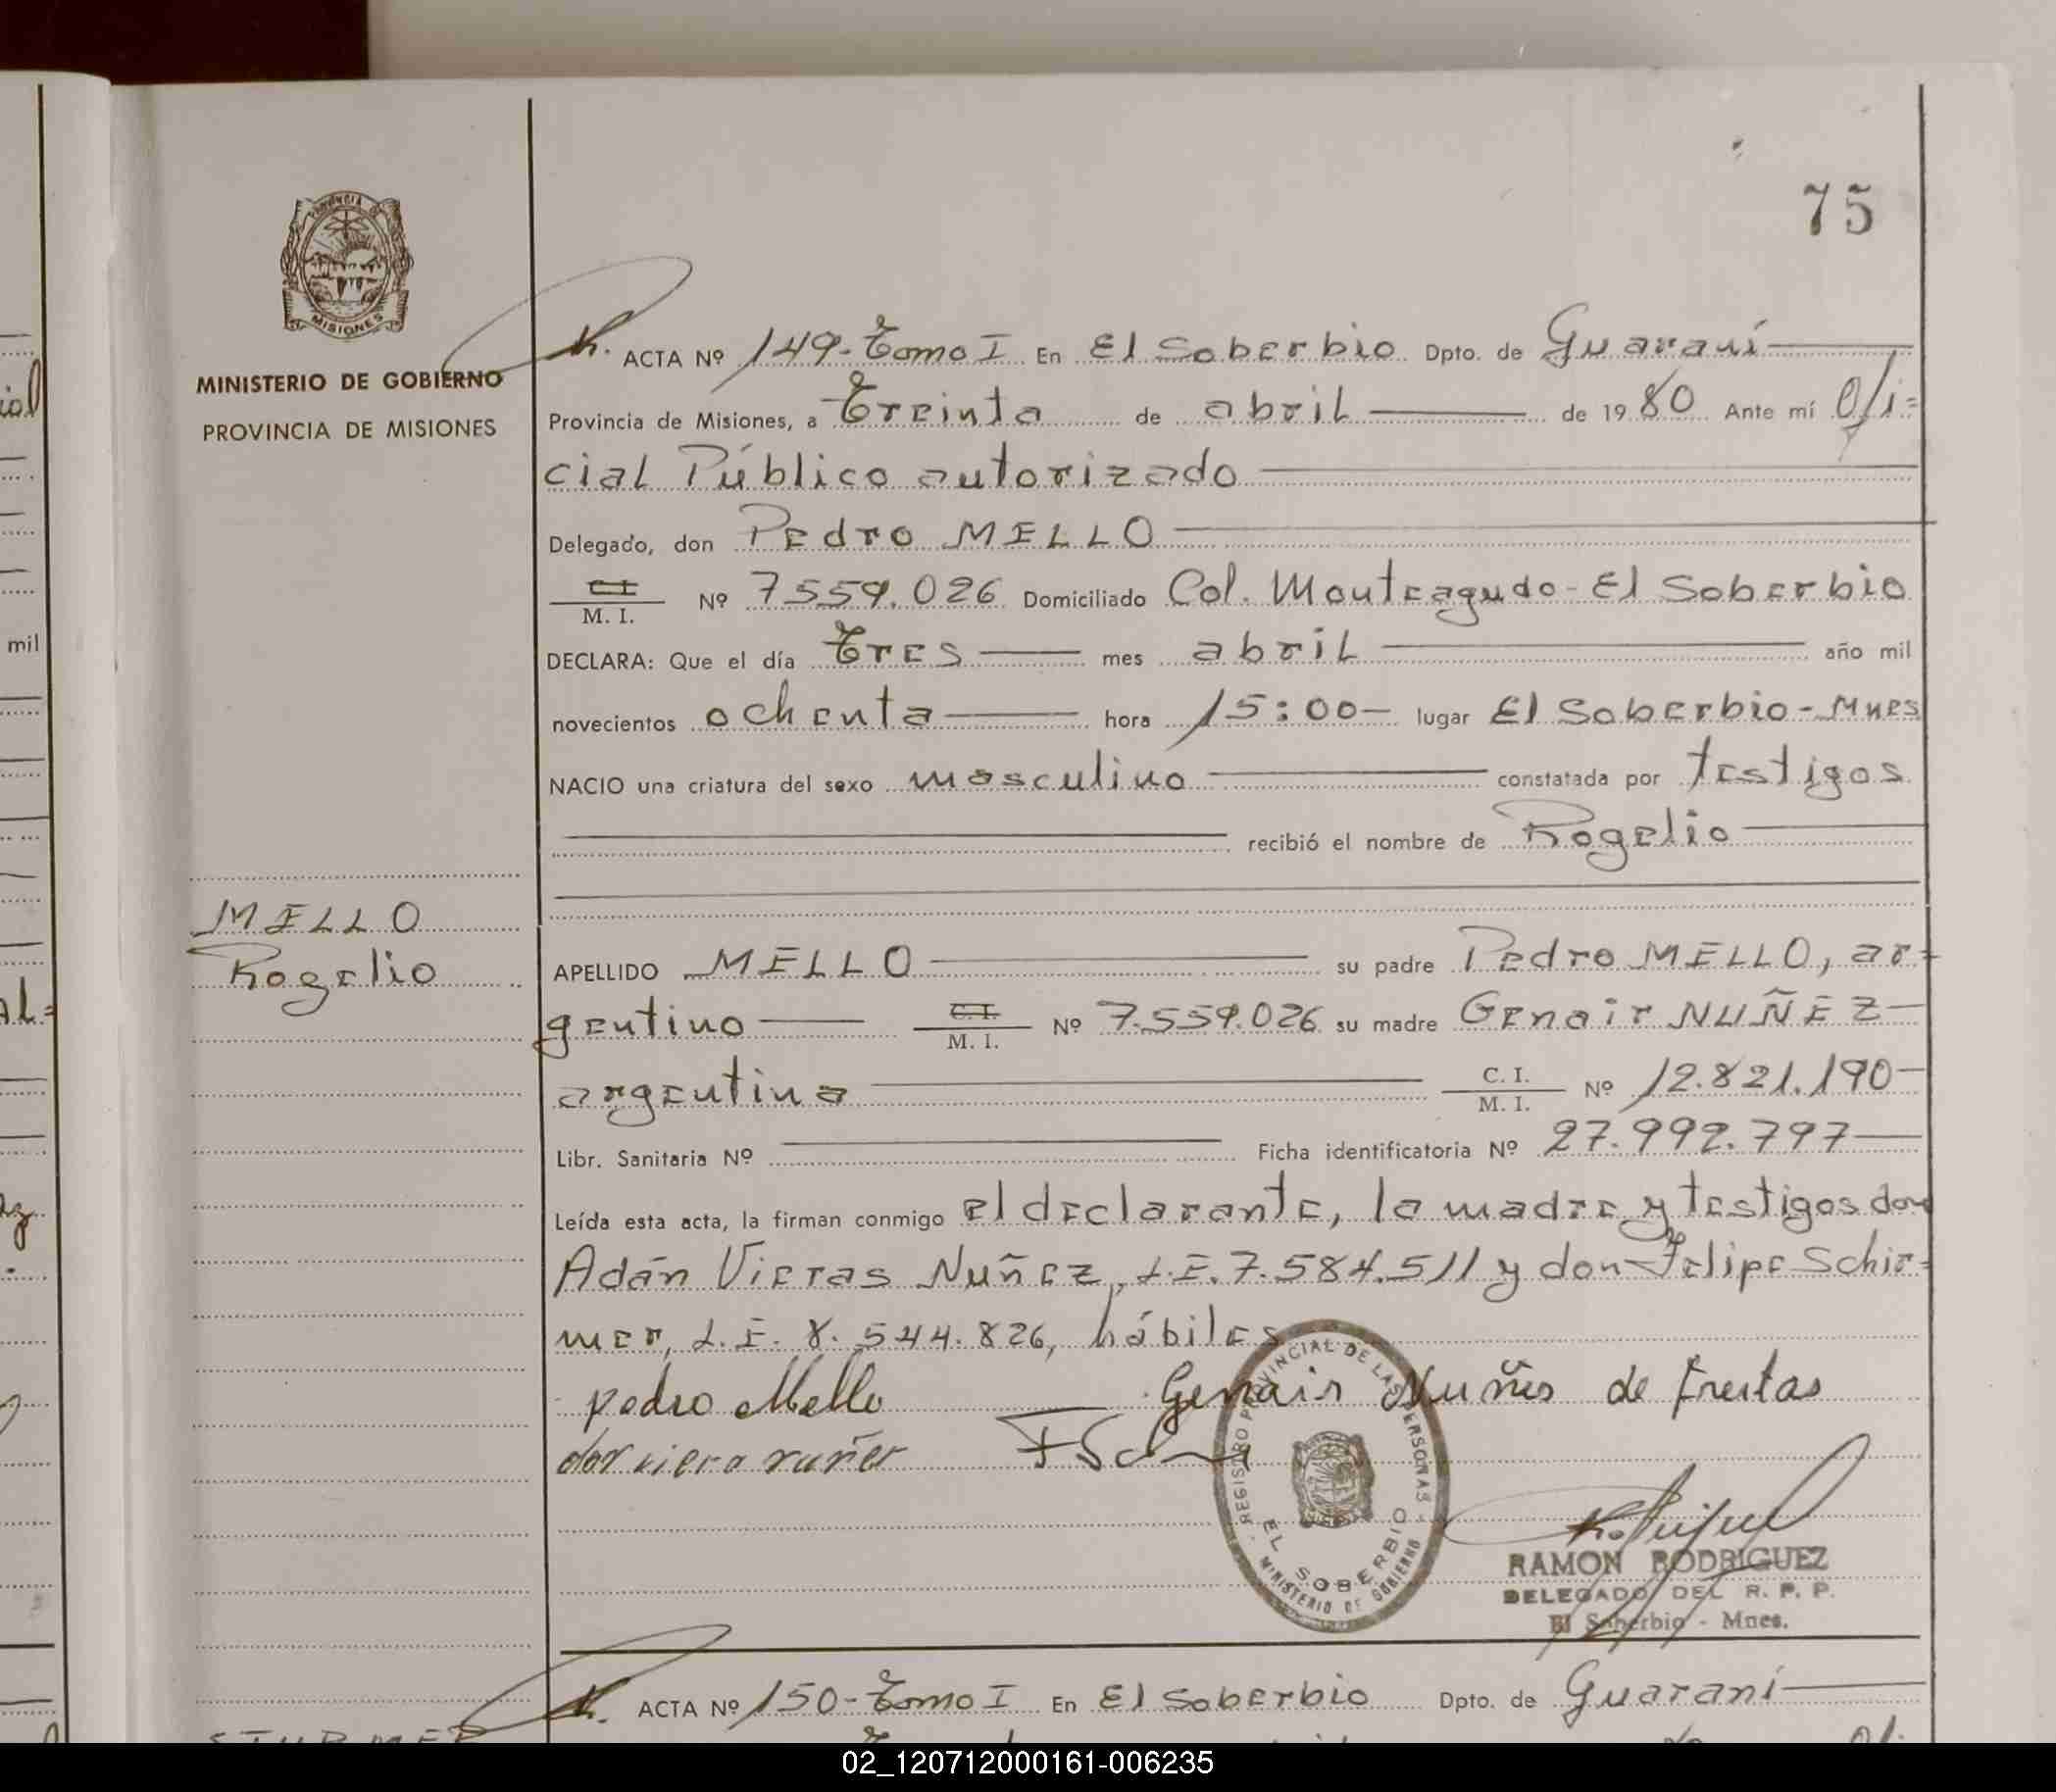 75
PROVINCIA DE
MISIONES
MINISTERIO DE GOBIERNO
PROVINCIA DE MISIONES
ACTA Nº 149-Tomo I En El Soberbio Dpto. de Guaraní
Provincia de Misiones, a Treinta de abril de 1980 Ante mí Ofi=
cial Público autorizado
Delegado, don Pedro MELLO
C I
M. I. Nº 7559.026 Domiciliado Col. Monteagudo-El Soberbio
DECLARA: Que el día Tres mes abril año mil
novecientos ochenta hora 15:00- lugar El Soberbio-Mnes
NACIO una criatura del sexo masculino constatada por testigos
recibió el nombre de Rogelio
MELLO
Rogelio
APELLIDO MELLO su padre Pedro MELLO, ar=
gentino C. I. M. I. Nº 7.559.026 su madre Genair NUÑEZ
argentina C. I. M. I. Nº 12.821.190
Libr. Sanitaria Nº Ficha identificatoria Nº 27.992.797
Leída esta acta, la firman conmigo el declarante, la madre y testigos don
Adán Vieras Nuñez, L.E. 7.584.511 y don Felipe Schir=
mer, L.E. 8.544.826, hábiles
pedro Mello Genair Nuñes de Freitas
REGISTRO PROVINCIAL DE LAS PERSONAS
EL SOBERBIO
MINISTERIO DE GOBIERNO
RAMON RODRIGUEZ
DELEGADO DEL R. P. P.
El Soberbio - Mnes.
ACTA Nº 150-Tomo I En El Soberbio Dpto. de Guaraní
mil
02_120712000161-006235